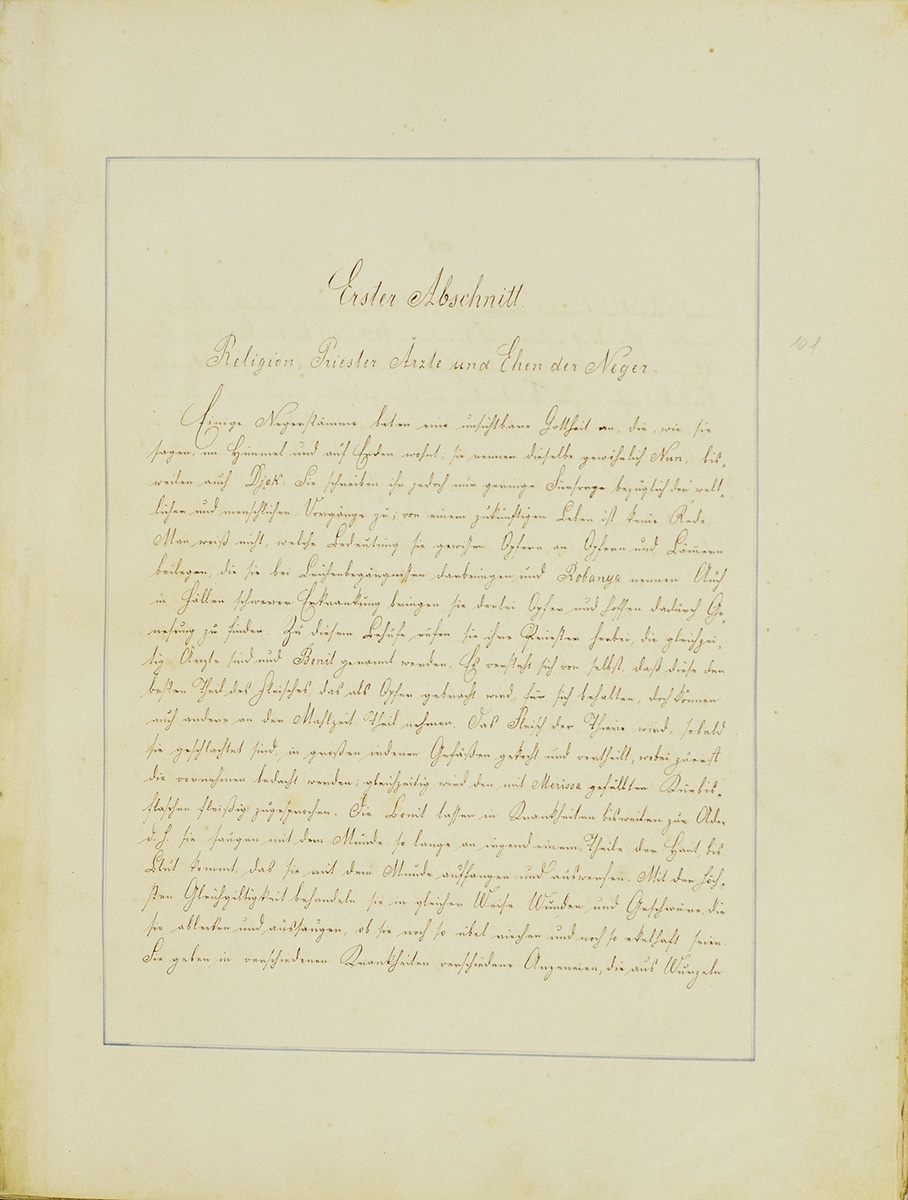 Erster Abschnitt.
101
Religion, Priester, Ärzte und Ehen der Neger.
Einige Negerstämme beten eine unsichtbare Gottheit an, die, wie sie
sagen, im Himmel und auf Erden wohnt; sie nennen dieselbe gewöhnlich Nun, bis-
weilen auch Djok. Sie schreiben ihr jedoch nur geringe Fürsorge bezüglich der welt-
lichen und menschlichen Vorgänge zu; von einem zukünftigen Leben ist keine Rede.
Man weiß nicht, welche Bedeutung sie gewissen Opfern an Opfern und Lämern
beilegen, die sie bei Leichenbegängnissen darbringen und Robanga nennen. Auch
in Fällen schwerer Erkrankung bringen sie derlei Opfer und hoffen dadurch Ge-
nesung zu finden. Zu diesem Behufe rufen sie ihre Priester herbei, die gleichzei-
tig Ärzte sind und Bonit genannt werden. Es versteht sich von selbst, daß diese den
besten Theil des Fleisches, das als Opfer gebracht wird, für sich behalten, doch können
auch andere an der Mahlzeit Theil nehmen. Das Fleisch der Thiere wird, sobald
sie geschlachtet sind, in großen irdenen Gefäßen gekocht und vertheilt, wobei zuerst
die vornehmen bedacht werden; gleichzeitig wird den mit Merissa gefüllten Kürbis-
flaschen fleißig zugesprochen. Die Bonit lassen in Krankheiten bisweilen zur Ader
d. h. sie saugen mit dem Munde so lange an irgend einem Theile der Haut bis
Blut kommt, das sie mit dem Munde auffangen und auswerfen. Mit der höch-
sten Gleichgiltigkeit behandeln sie in gleicher Weise Wunden und Geschwüre, die
sie ablecken und aussaugen, ob sie noch so übel riechen und noch so ekelhaft seien.
Sie geben in verschiedenen Krankheiten verschiedene Arzeneien, die aus Wurzeln